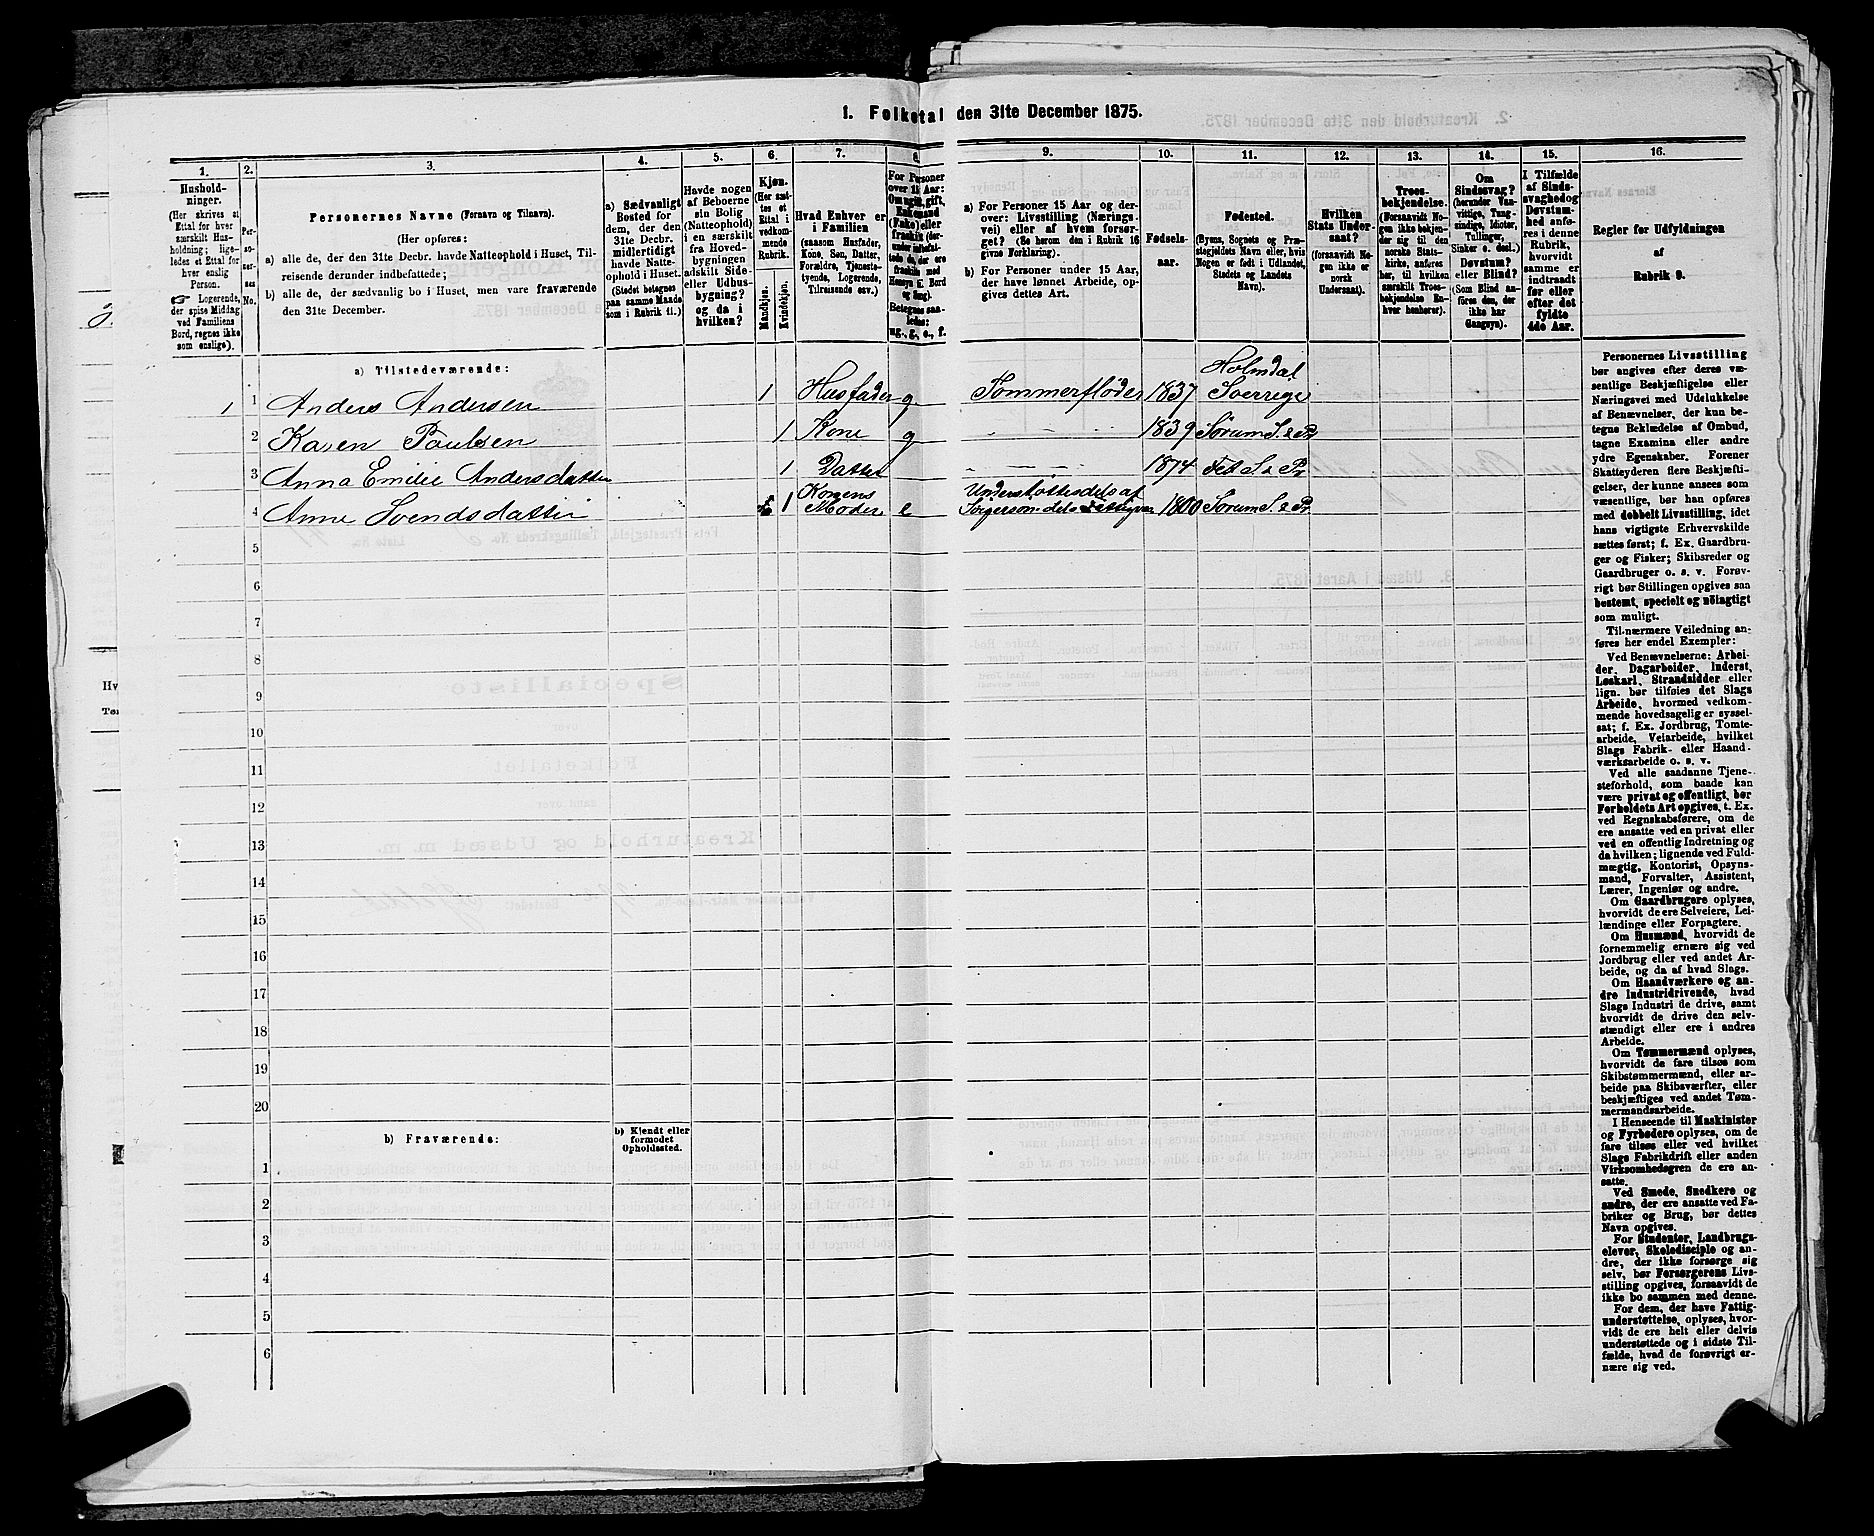 1. Folketal den 31te December 1875.
1. 2. 3. 4. 5. 6. 7. 8. 9. 10. 11. 12. 13. 14. 15. 16.
Hushold-
ninger.
(Her skrives et
Ettal for hver
særskilt Hus-
holdning; lige-
ledes et Ettal for
hver enslig
Person.
☞ Logerende,
der spise Middag
ved Familiens
Bord, regnes ikke
som enslige).
Per-
so-
ner-
nes
No.
Personernes Navne (Fornavn og Tilnavn).
(Her opføres:
a) alle de, der den 31te Decbr. havde Natteophold i Huset, Til-
reisende derunder indbefattede;
b) alle de, der sædvanlig bo i Huset, men vare fraværende
den 31te December.
a) Sædvanligt
Bosted for
dem, der den
31te Decbr.
midlertidigt
havde Natte-
ophold i Huset.
(Stedet betegnes
paa samme Maade
som i Rubrik 11.)
Havde nogen
af Beboerne
sin Bolig
(Natteophold)
i en særskilt
fra Hoved-
bygningen
adskilt Side-
eller Udhus-
bygning?
og da i
hvilken?
Kjøn.
(Her sæt-
tes et
Ettal i
vedkom-
mende
Rubrik.
Mandkjøn.
Kvindekjøn.
Hvad Enhver er
i Familien
(saasom Husfader,
Kone, Søn, Datter,
Forældre, Tjeneste-
tyende, Logerende,
Tilreisende osv.)
For Personer
over 15 Aar:
Om ugift, gift,
Enkemand
(Enke) eller
fraskilt (der-
under indbefat-
tede de, der ere
fraskilte med
Hensyn til Bord
og Seng).
Betegnes saa-
ledes:
ug., g., e., f.
a) For Personer 15 Aar og der-
over: Livsstilling (Nærings-
vei) eller af hvem forsør-
get? (Se herom den i Rubrik 16
givne Forklaring).
b) For Personer under 15 Aar,
der have lønnet Arbeide, op-
gives dettes Art.
Fødsels-
aar.
Fødested.
(Byens, Sognets og Præ-
stegjeldets Navn eller, hvis
Nogen er født i Udlandet,
Stedets og Landets
Navn).
Hvilken
Stats Under-
saat?
(forsaavidt No-
gen ikke er
norsk
Undersaat).
Troes-
bekjendelse.
(Forsaavidt No-
gen ikke bekjen-
der sig til den
norske Stats-
kirke, anføres
her, til hvilken
særskilt Troes-
bekjendelse En-
hver henhører).
Om
Sindssvag?
(herunder Van-
vittige, Tung-
sindige, Idioter,
Tullinger,
Sinker o. desl.)
Døvstum?
eller Blind?
(Som Blind an-
føres den, der
ikke har
Gangsyn).
I Tilfælde
af Sinds-
svaghed og
Døvstum-
hed anfø-
res i denne
Rubrik,
hvorvidt
samme er
indtraadt
før eller
efter det
fyldte
4de Aar.
Regler for Udfyldningen
af
Rubrik 9.
a) Tilstedeværende:
Holmdal
1 1 Anders Andersen 1 Husfader g Tommerfløder 1837 Sverrige
2 Karen Paulsen 1 Kone g - - - 1839 Sørum S. & Pr
3 Anna Emilie Andersdatter 1 Datter - - - 1874 Fet S & Pr
Konens Understøttes dels af
4 Anne Svendsdatter 1 Moder e dels 1800 Sørum S. & Pr.
5
6
7
8
9
10
11
12
13
14
15
16
17
18
19
20
b) Fraværende:
b) Kjendt eller
formodet
Opholdssted.
1
2
3
4
5
6
Personernes Livsstilling
bør angives efter deres væ-
sentlige Beskjæftigelse eller
Næringsvei med Udelukkelse
af Benævnelser, der kun be-
tegne Beklædelse af Ombud,
tagne Examina eller andre
ydre Egenskaber. Forener
Skatteyderen flere Beskjæfti-
gelser, der kunne ansees som
væsentlige, bør han opføres
med dobbelt Livsstilling, idet
hans vigtigste Erhvervskilde
sættes først; f. Ex. Gaardbru-
ger og Fisker; Skibsreder og
Gaardbruger o. s. v. Forøv-
rigt bør Stillingen opgives saa
bestemt, specielt og nöiagtigt
som muligt.
Til nærmere Veiledning an-
føres her endel Exempler:
Ved Benævnelserne: Arbei-
der, Dagarbeider, Inderst,
Løskarl, Strandsidder eller
lign. bør tilføies det Slags
Arbeide, hvormed vedkom-
mende hovedsagelig er syssel-
sat; f. Ex. Jordbrug, Tomte-
arbeide, Veiarbeide, hvilket
Slags Fabrik- eller Haand-
værksarbeide o. s. v.
Ved alle saadanne Tjene-
steforhold, som baade kan
være privat og offentligt, bør
Forholdets Art opgives, t. Ex.
ved Regnskabsførere, om de
ere ansatte ved en privat eller
ved en offentlig Indretning og
da hvilken; lignende ved Fuld-
mægtig, Kontorist, Opsyns-
mand, Forvalter, Assistent,
Lærer, Ingeniør og andre.
Om Gaardbrugere oplyses,
hvorvidt de ere Selveiere, Lei-
lændinge eller Forpagtere.
Om Husmænd, hvorvidt de
fornemmelig ernære sig ved
Jordbrug eller ved andet Ar-
beide, og da af hvad Slags.
Om Haandværkere og an-
dre Industridrivende, hvad
Slags Industri de drive, samt
hvorvidt de drive den selv-
stændigt eller ere i andres
Arbeide.
Om Tømmermænd oplyses,
hvorvidt de fare tilsøs som
Skibstømmermænd, eller ar-
beide paa Skibsværfter, eller
beskjæftiges ved andet Tøm-
mermandsarbeide.
I Henseende til Maskinister
og Fyrbødere oplyses, om de
fare tilsøs eller ved hvilket
Slags Fabrikdrift eller anden
Virksomhedsgren de ere an-
satte.
Ved Smede, Snedkere og
andre, der ere ansatte ved Fa-
briker og Brug, bør dettes
Navn opgives.
For Studenter, Landbrugs-
elever, Skoledisciple og an-
dre, der ikke forsørge sig
selv, bør Forsørgerens Livs-
stilling opgives, forsaavidt de
ikke bo sammen med denne.
For dem, der have Fattig-
understøttelse, oplyses, hvor-
vidt de ere helt eller delvis
understøttede og i sidste Til-
fælde, hvad de forøvrigt er-
nære sig ved.